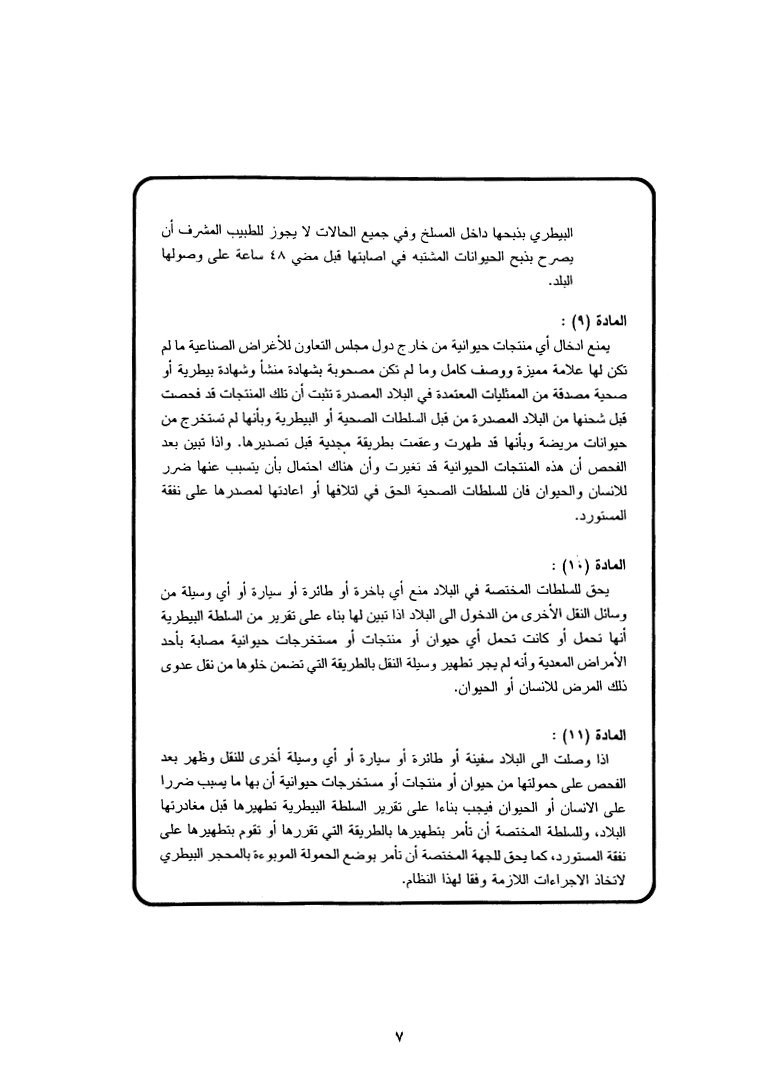 البيطري بذبحها داخل المسلخ وفي جميع الحالات لا يجوز للطبيب المشرف أن
يصرح بذبح الحيوانات المشتبه في اصابتها قبل مضي ٤٨ ساعة على وصولها
البلد.
المادة (٩) :
يمنع ادخال أي منتجات حيوانية من خارج دول مجلس التعاون للأغراض الصناعية ما لم
تكن لها علامة مميزة ووصف كامل وما لم تكن مصحوبة بشهادة منشأ وشهادة بيطرية أو
صحية مصدقة من الممثليات المعتمدة في البلاد المصدرة تثبت أن تلك المنتجات قد فحصت
قبل شحنها من البلاد المصدرة من قبل السلطات الصحية أو البيطرية وبأنها لم تستخرج من
حيوانات مريضة وبأنها قد طهرت وعقمت بطريقة مجدية قبل تصديرها. واذا تبين بعد
الفحص أن هذه المنتجات الحيوانية قد تغيرت وأن هناك احتمال بأن يتسبب عنها ضرر
للانسان والحيوان فان للسلطات الصحية الحق في اتلافها أو اعادتها لمصدرها على نفقة
المستورد.
المادة (١٠) :
يحق للسلطات المختصة في البلاد منع أي باخرة أو طائرة أو سيارة أو أي وسيلة من
وسائل النقل الأخرى من الدخول الى البلاد اذا تبين لها بناء على تقرير من السلطة البيطرية
أنها تحمل أو كانت تحمل أي حيوان أو منتجات أو مستخرجات حيوانية مصابة بأحد
الأمراض المعدية وأنه لم يجر تطهير وسيلة النقل بالطريقة التي تضمن خلوها من نقل عدوى
ذلك المرض للانسان أو الحيوان.
المادة (١١) :
اذا وصلت الى البلاد سفينة أو طائرة أو سيارة أو أي وسيلة أخرى للنقل وظهر بعد
الفحص على حمولتها من حيوان أو منتجات أو مستخرجات حيوانية أن بها ما يسبب ضررا
على الانسان أو الحيوان فيجب بناءا على تقرير السلطة البيطرية تطهيرها قبل مغادرتها
البلاد، وللسلطة المختصة أن تأمر بتطهيرها بالطريقة التي تقررها أو تقوم بتطهيرها على
نفقة المستورد، كما يحق للجهة المختصة أن تأمر بوضع الحمولة الموبوءة بالمحجر البيطري
لاتخاذ الاجراءات اللازمة وفقا لهذا النظام.
٧